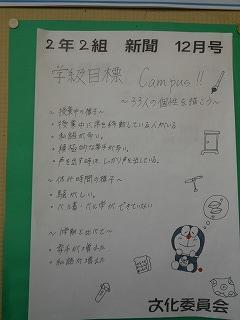 2年2組 新聞 12月号
学級目標 Campus!!
～33人の個性を描こう～
～授業中の様子～
・授業中に席を移動している人がいる
・私語が多い。
・積極的な挙手が多い。
・声を出す時は、しっかり声を出している。
～休み時間の様子～
・騒がしい。
・ベル着・ベル学ができていない
・挙手が増えた
・私語が増えた
文化委員会